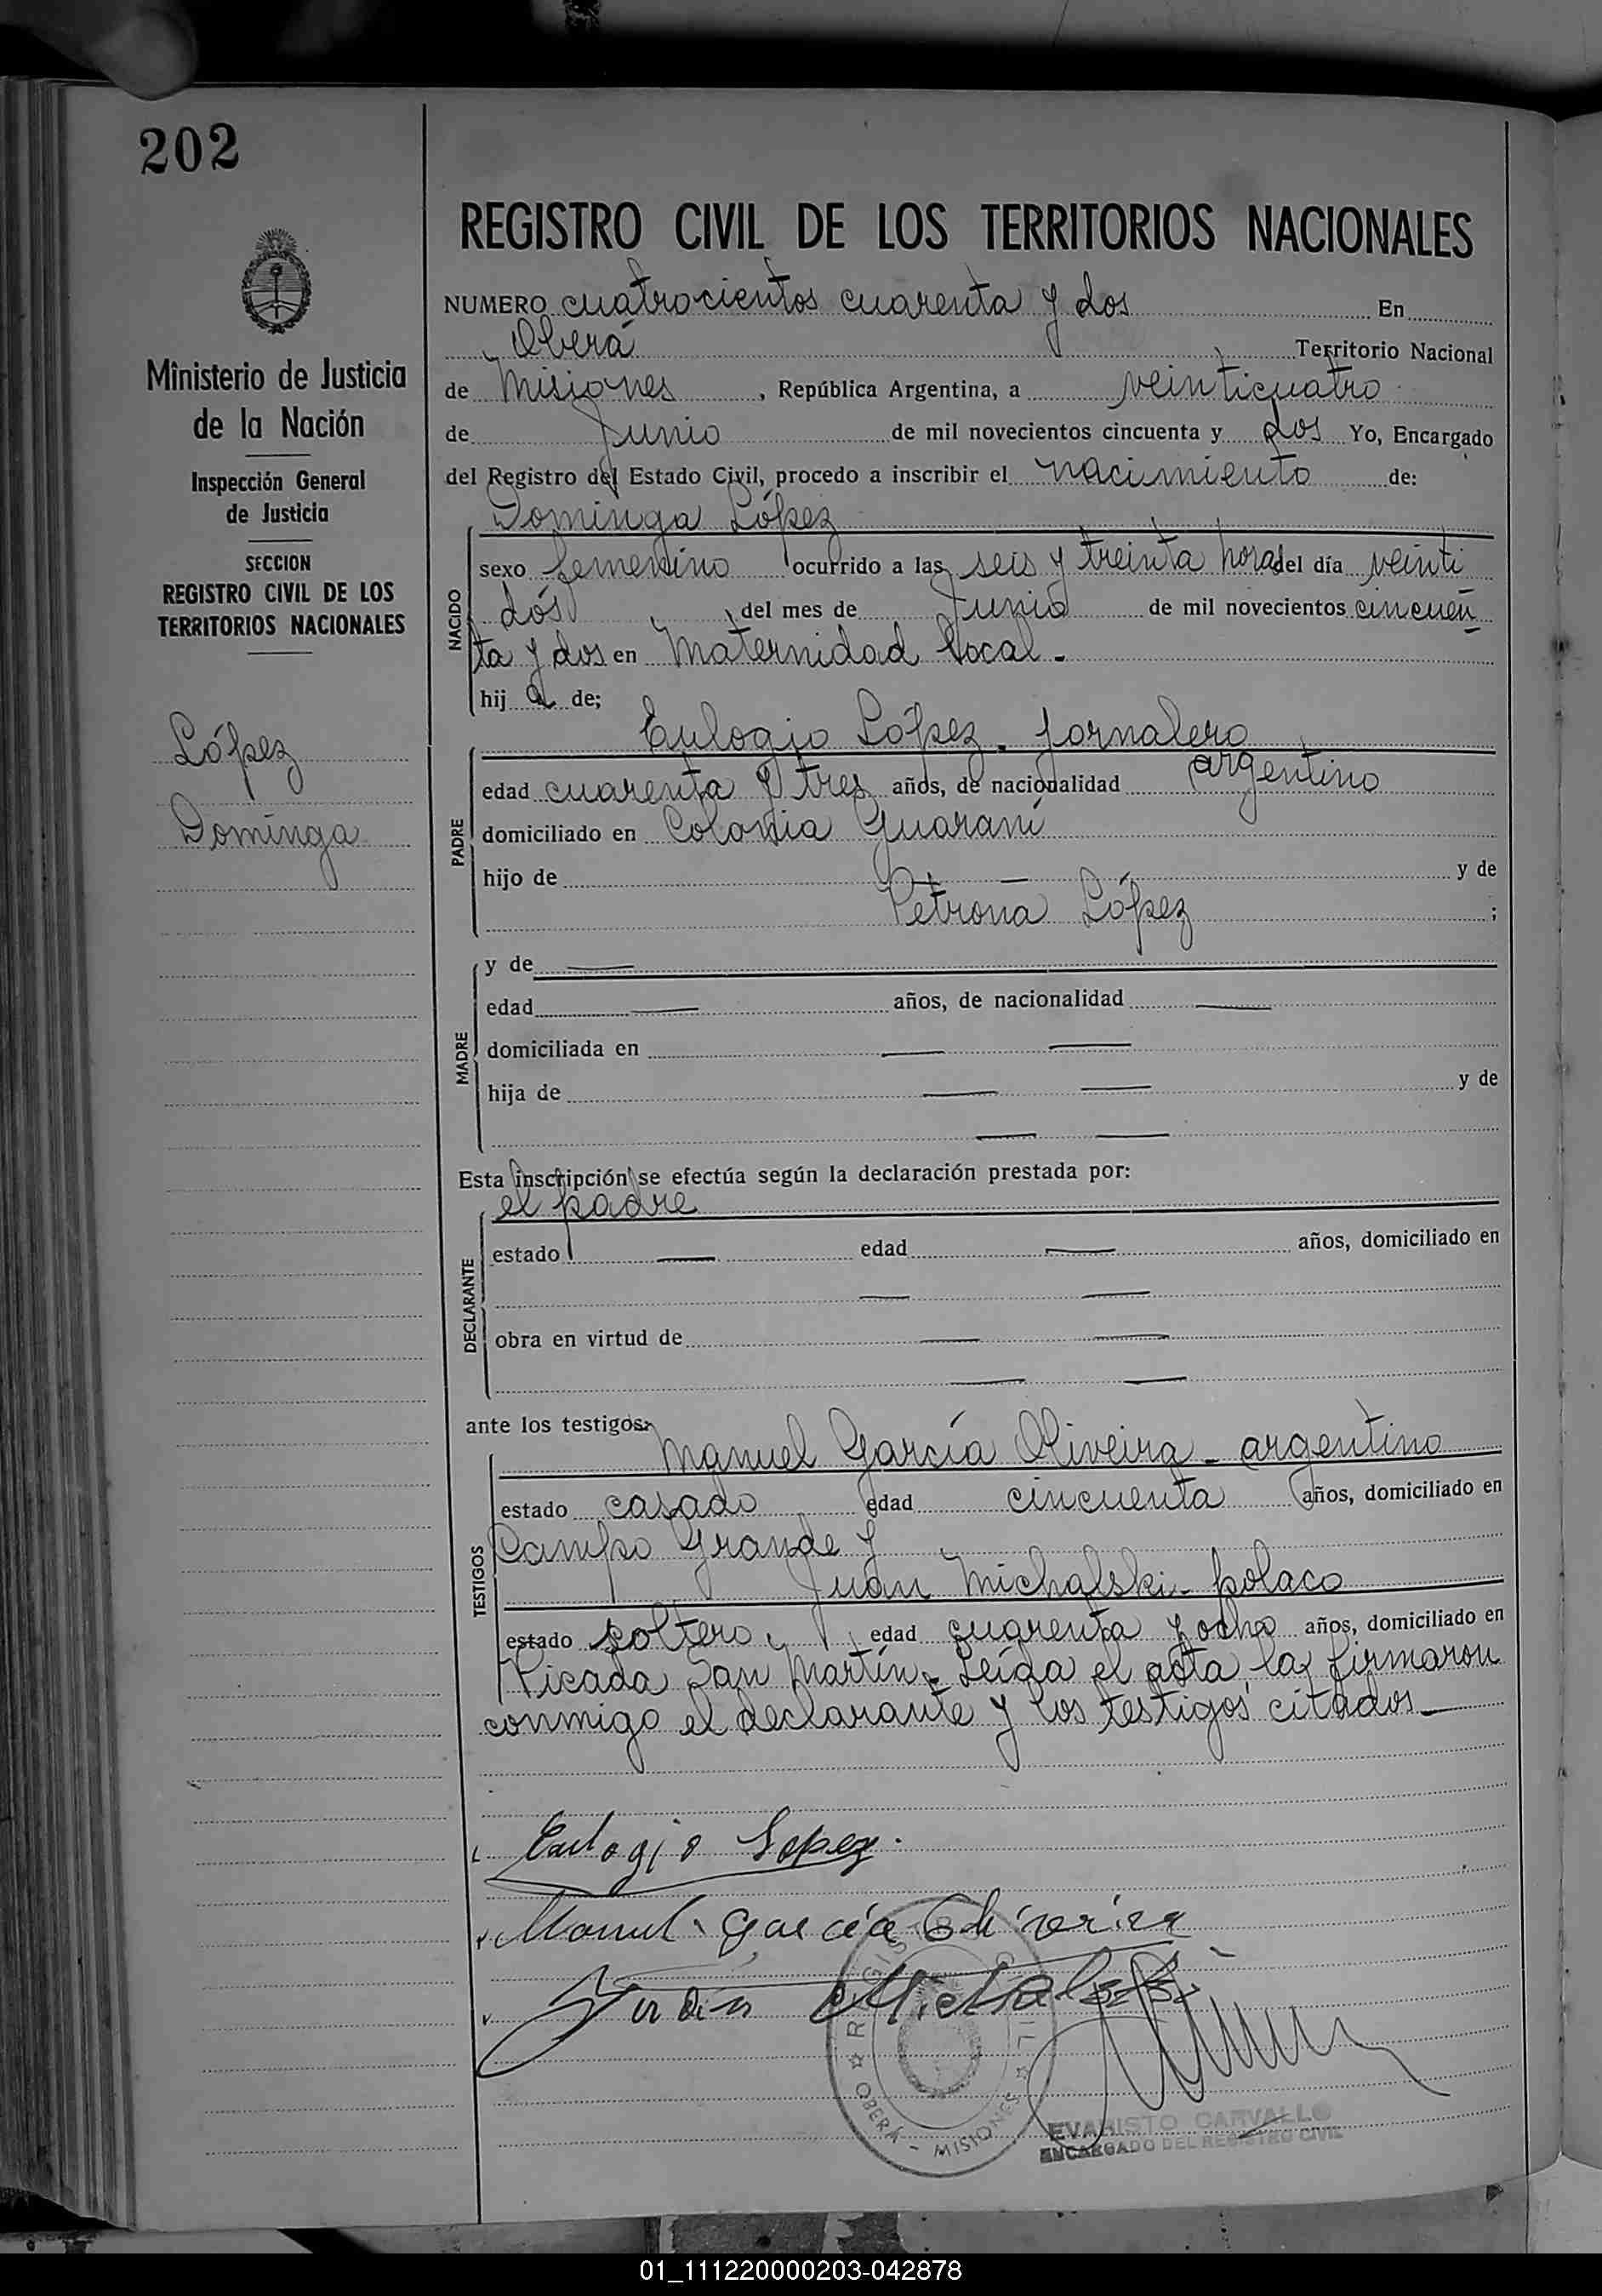 202
Ministerio de Justicia
de la Nación
Inspección General
de Justicia
SECCION
REGISTRO CIVIL DE LOS
TERRITORIOS NACIONALES
López
Dominga
REGISTRO CIVIL DE LOS TERRITORIOS NACIONALES
NUMERO cuatrocientos cuarenta y dos En
Oberá Territorio Nacional
de Misiones, República Argentina, a veinticuatro
de Junio de mil novecientos cincuenta y dos Yo, Encargado
del Registro del Estado Civil, procedo a inscribir el nacimiento de:
Dominga López
NACIDO
sexo femenino ocurrido a las seis y treinta horas del día veinti
dós del mes de Junio de mil novecientos cincuen
ta y dos en Maternidad local.-
hij a de;
Eulogio López. jornalero
PADRE
edad cuarenta y tres años, de nacionalidad argentino
domiciliado en Colonia Guaraní
hijo de — — y de
Petrona López ;
MADRE
y de —
edad — años, de nacionalidad —
domiciliada en — —
hija de — — y de
— —
Esta inscripción se efectúa según la declaración prestada por:
el padre
DECLARANTE
estado — edad — años, domiciliado en
— —
obra en virtud de — —
— —
ante los testigos:
Manuel García Oliveira - argentino
TESTIGOS
estado casado edad cincuenta años, domiciliado en
Campo Grande y
Juan Michalski - polaco
estado soltero, edad cuarenta y ocho años, domiciliado en
Picada San Martín. Leída el acta la firmaron
conmigo el declarante y los testigos citados —
Eulogio Lopez.
Manuel García Oliveira
Juan Michalski
REGISTRO CIVIL
OBERÁ - MISIONES
EVARISTO CARVALLO
ENCARGADO DEL REGISTRO CIVIL
01_111220000203-042878